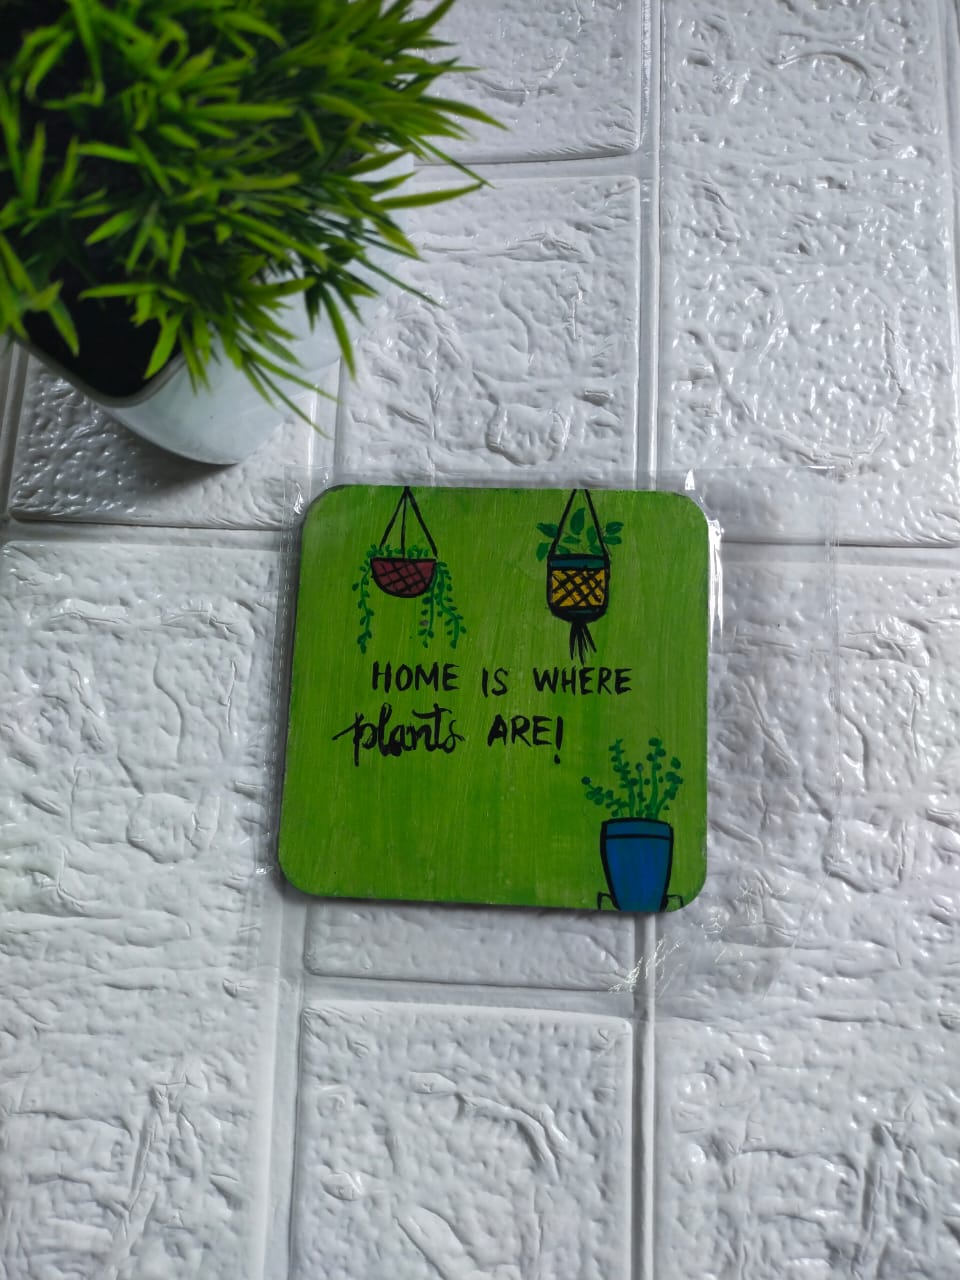 HOME IS WHERE
plants ARE!